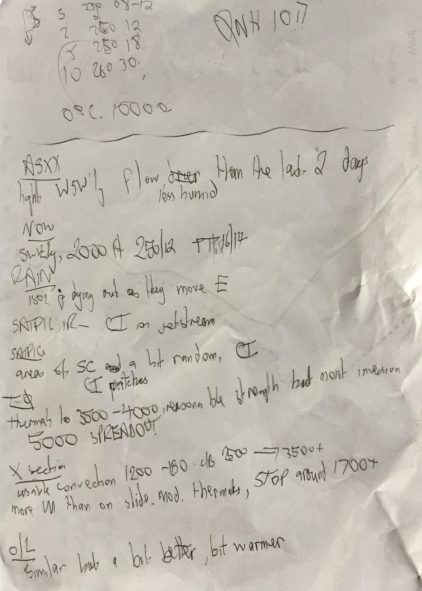 S 250 08-12
2 250 12
250 18
10 260 30
QNH 1017
0°C. 10000
ASXX
light WSW'ly flow than the last 2 days
less humid
NOW
SW'ly, 2000 ft 250/12 TT 16/14
RAIN
isol dying out as they move E
SATPIC IR - CI on jetstream
SATPIC
areas of SC and a bit random, CI
CI patches
thermals to 3500-4000, reasonable strength but moist inversion
5000 SPREADOUT!
X section
usable convection 1200 - 1800 c/b 2500 → 3500+
more W than on slide. mod. thermals, STOP around 1700+
O/L
Similar but a bit better, bit warmer